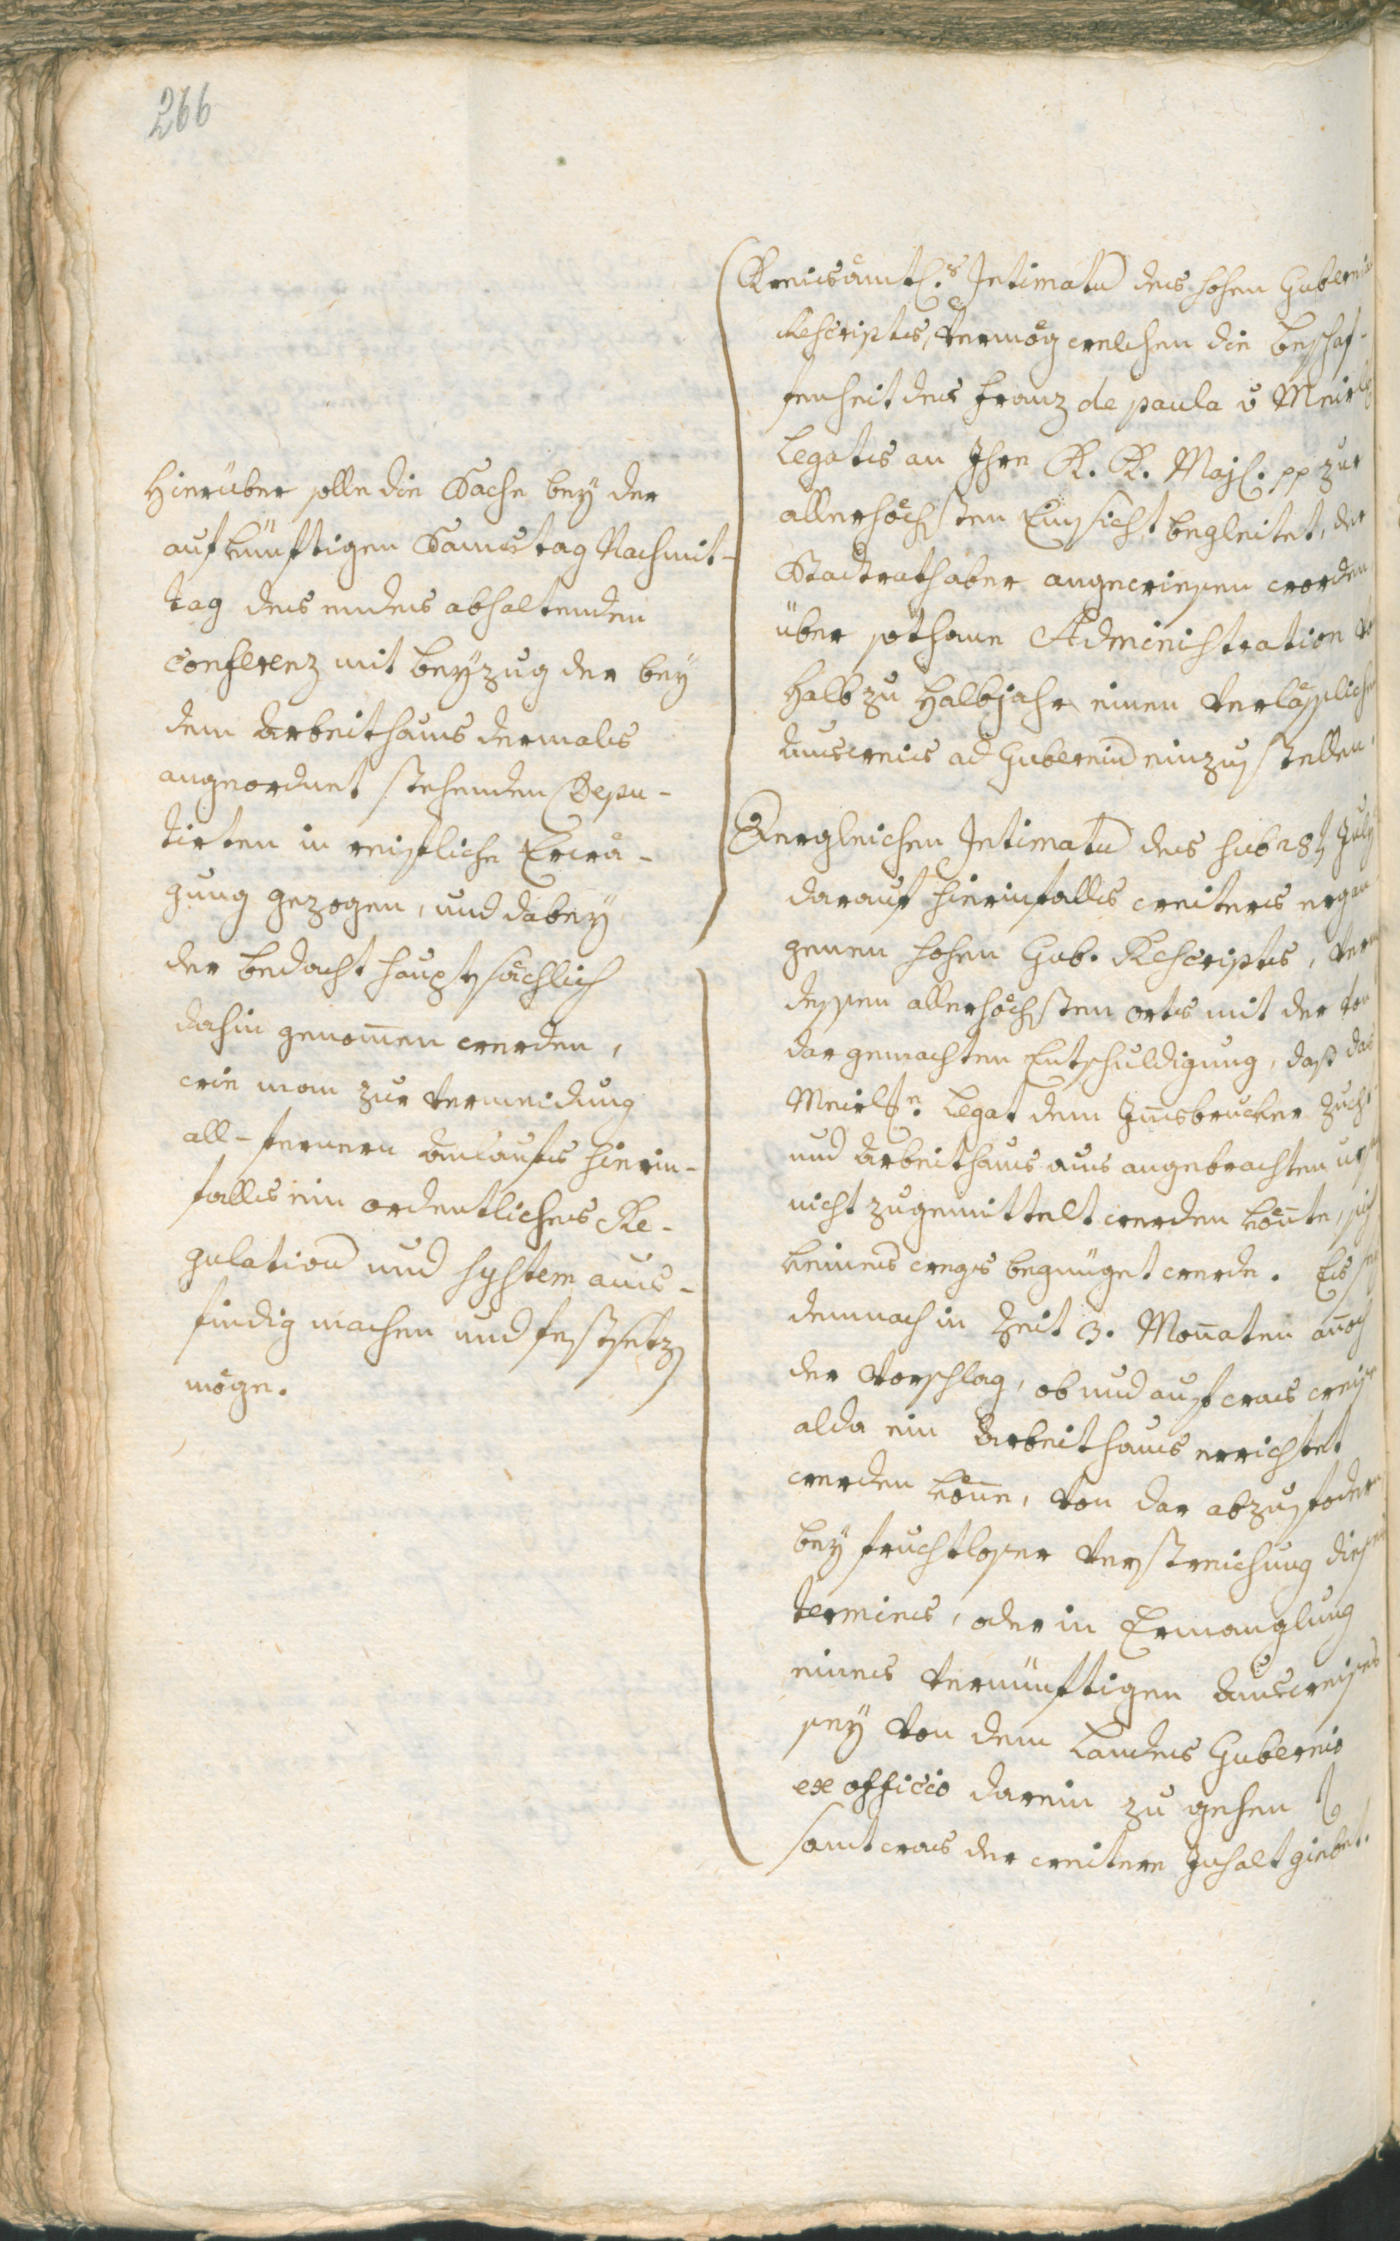 266
Hierüber solle die Sache bey der
auf künftigen Samstag Nachmit-
tag des endes abhaltenden
conferenz mit beyzug der bey
dem Arbeithaus dermals
angeordnet stehenden Depu-
tirten in reifliche Erwä-
gung gezogen, und dabey
der bedacht hauptsächlich
dahin genom̄en werden,
wie man zur vermeidung
all-fernern anlaufs hierin-
falls ein ordentliches Re-
gulation und system aus-
findig machen und festsetzen
möge.
Kreisämtl.s Intimatum des hohen Gubernial
Rescripts, vermög welchen die beschaf-
fenheit des Franz de paula v Meirls
Legats an Ihre K. K. Maj. pp zur
allerhöchsten Einsicht begleitet, der
Stadtrath aber angewiesen worden
über sothane Administration
halb zu halbjahr einen verläßlichen
Ausweis ad Gubernium einzustellen.
Dergleichen Intimatum des sub 28t July
darauf hierinfalls weiters ergan-
genen hohen Gub. Rescripts,
dessen allerhöchsten orts mit der von
dar gemachten Entschuldigung, daß das
Meirls. Legat dem Insbrucker Zucht
und Arbeithaus aus angebrachten
nicht zugemittelt werden kön̄te, sich
keines wegs begnüget werde. Es sey
demnach in Zeit 3. Monaten an̄och
der Vorschlag, ob und auf was weise
alda ein Arbeithaus errichtet
werden kön̄e, von dar abzufodern
bey fruchtloser verstreichung dieses
termins, oder in Ermanglung
eines vernünftigen Ausweises
sey von dem Landes Gubernio
ex officio darein zu gehen
samt was der weitere Inhalt giebet.